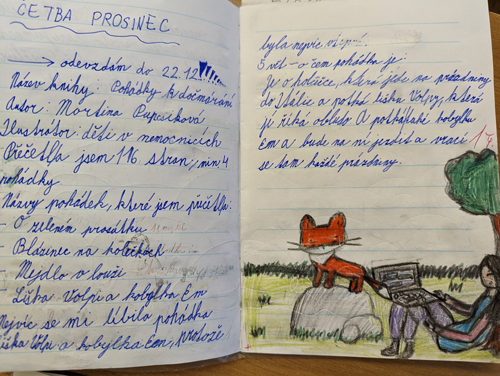 ČETBA PROSINEC
→ odevzdám do 22.12!!!
Název knihy: Pohádky k dočmárání
Autor: Martina
Ilustrátor: děti v nemocnicích
Přečetla jsem 116 stran, min 4
pohádky.
Názvy pohádek, které jsem přečetla:
- O zeleném prasátku
- Blázinec na kolečkách
- Mejdlo v louži
- Liška Volpi a kobylka Em
Nejvíc se mi líbila pohádka
Liška Volpi a kobylka Em, protože
byla nejvíc
5 vět - o čem pohádka je:
Je o holčice, která jede na prázdniny
do Itálie a potká lišku Volpi, která
jí říká A kobylku
Em a bude na ní jezdit a vrací
se tam každé prázdniny.